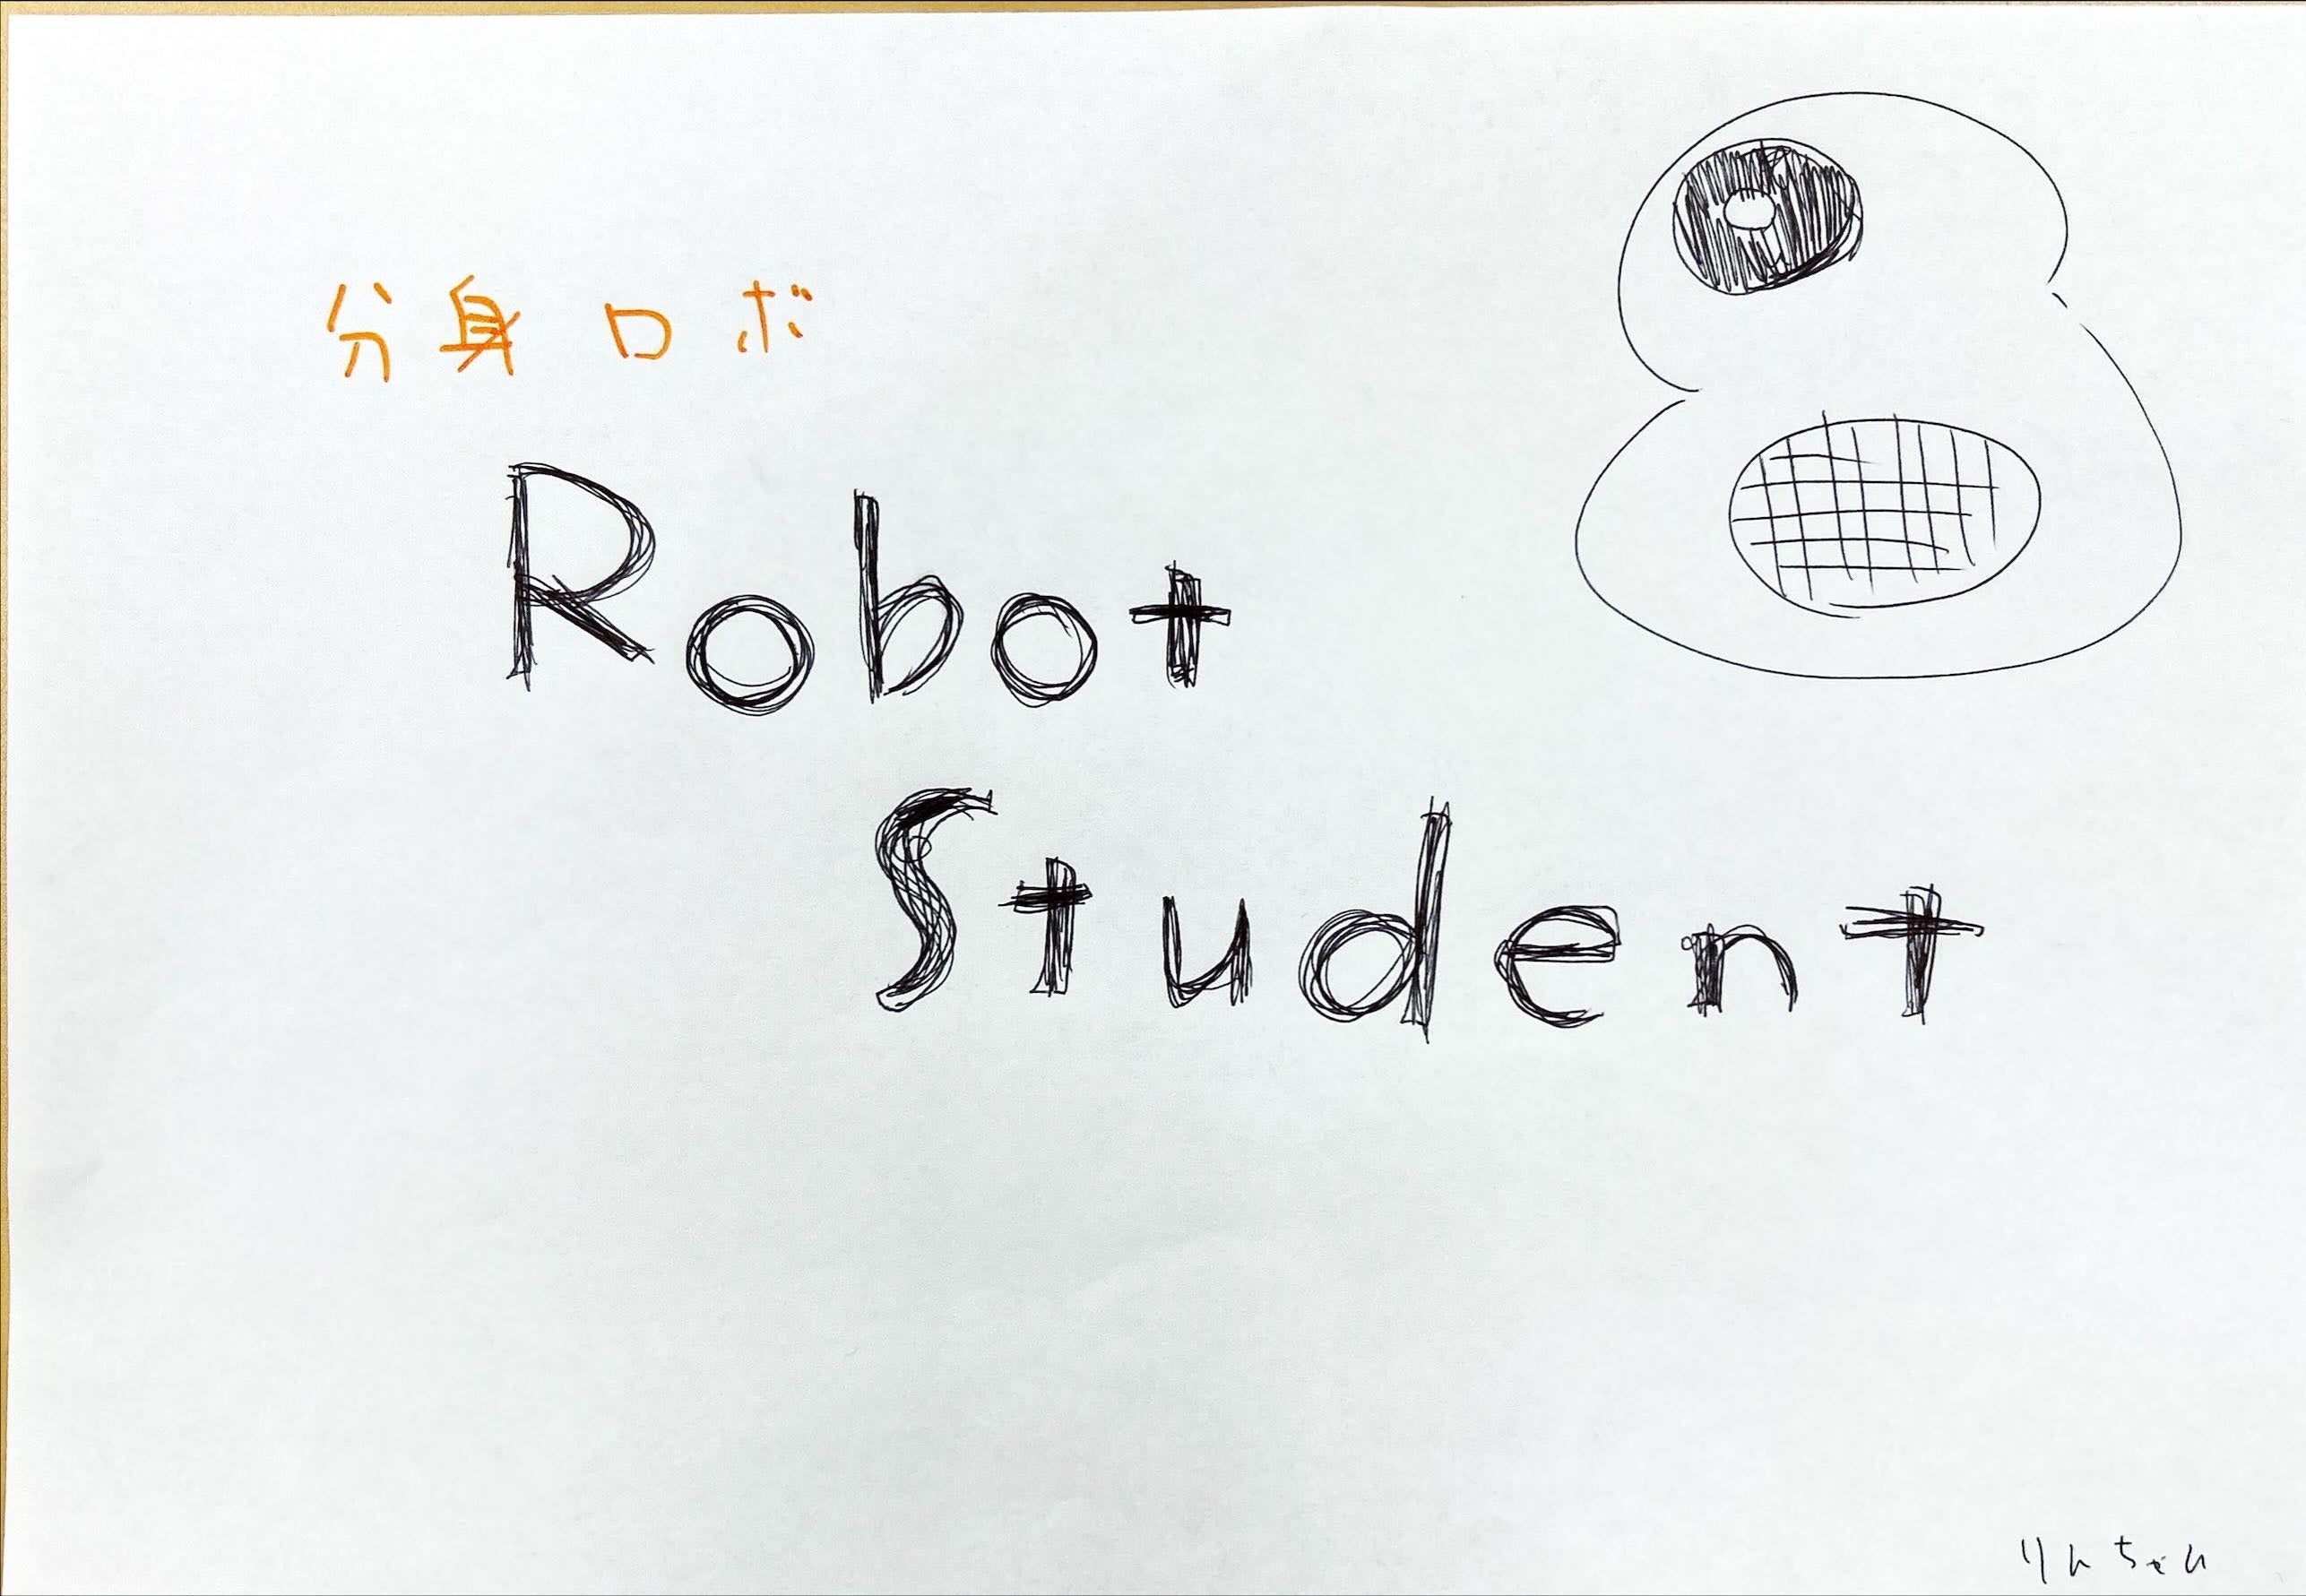 分身ロボ
Robot
Student
りんちゃん